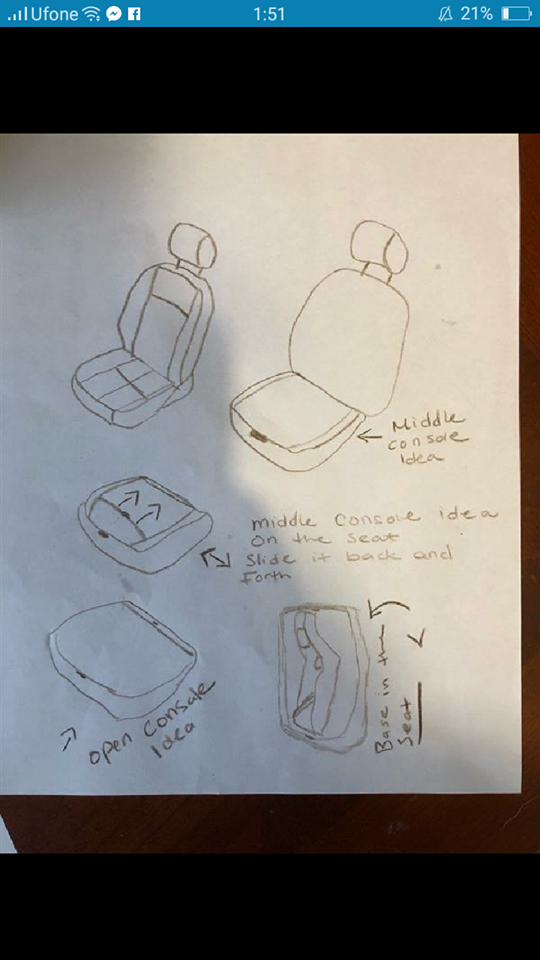 Ufone
1:51
21%
Middle
console
Idea
middle console idea
on the seat
Slide it back and
Forth
open console
Idea
Base in the
Seat